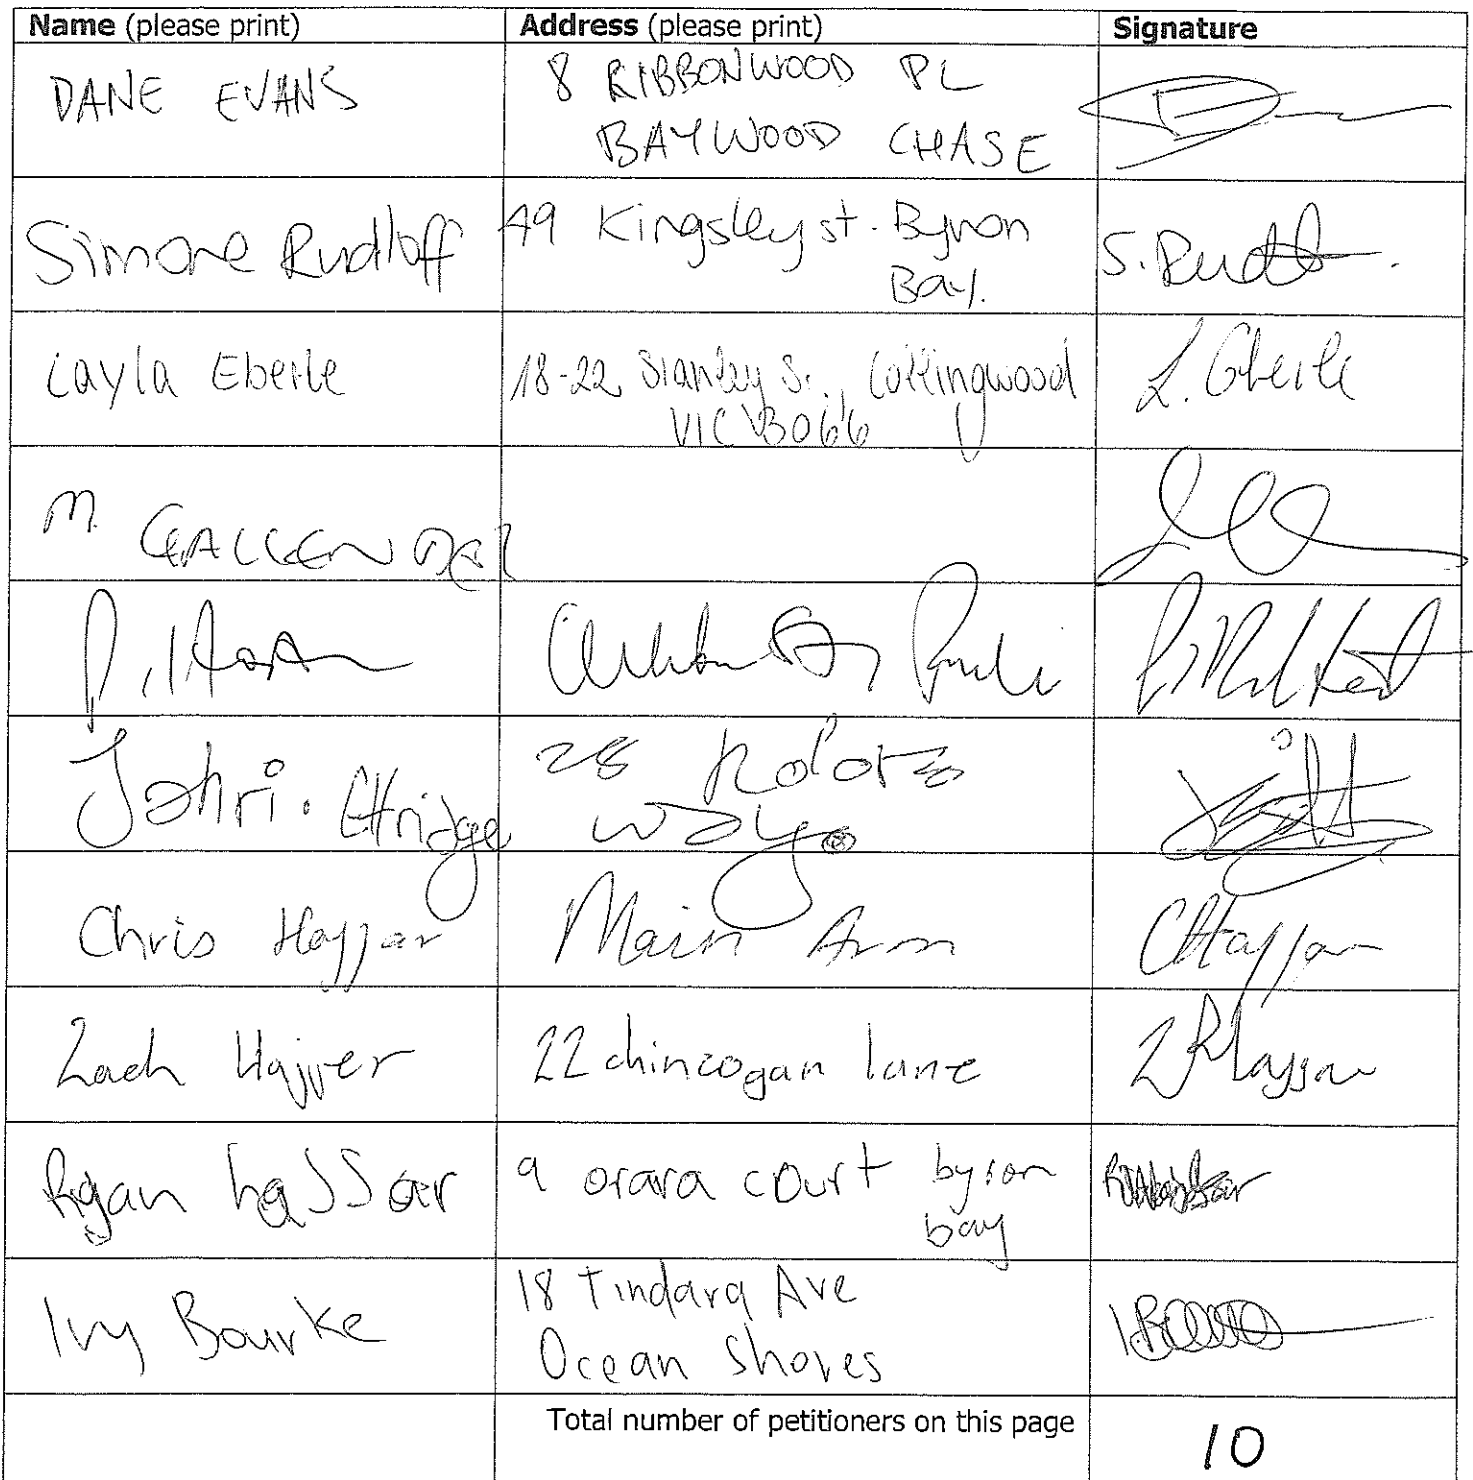 Name (please print) Address (please print) Signature
DANE EVANS 8 RIBBONWOOD PL
BAYWOOD CHASE
Simone Rudloff 49 Kingsley st. Byron
Bay. S. Rudl
Layla Eberle 18-22 Stanley S., Collingwood
VIC 3066 L. Eberle
M. CALLENDER
Johri. Ettridge 28 Kolora
way.
Chris Hajjar Main Arm CHajjar
Zach Hajjer 22 chincogan lane
Ryan hajjar 9 orara court byron
bay
Ivy Bourke 18 Tindara Ave
Ocean Shores
Total number of petitioners on this page 10